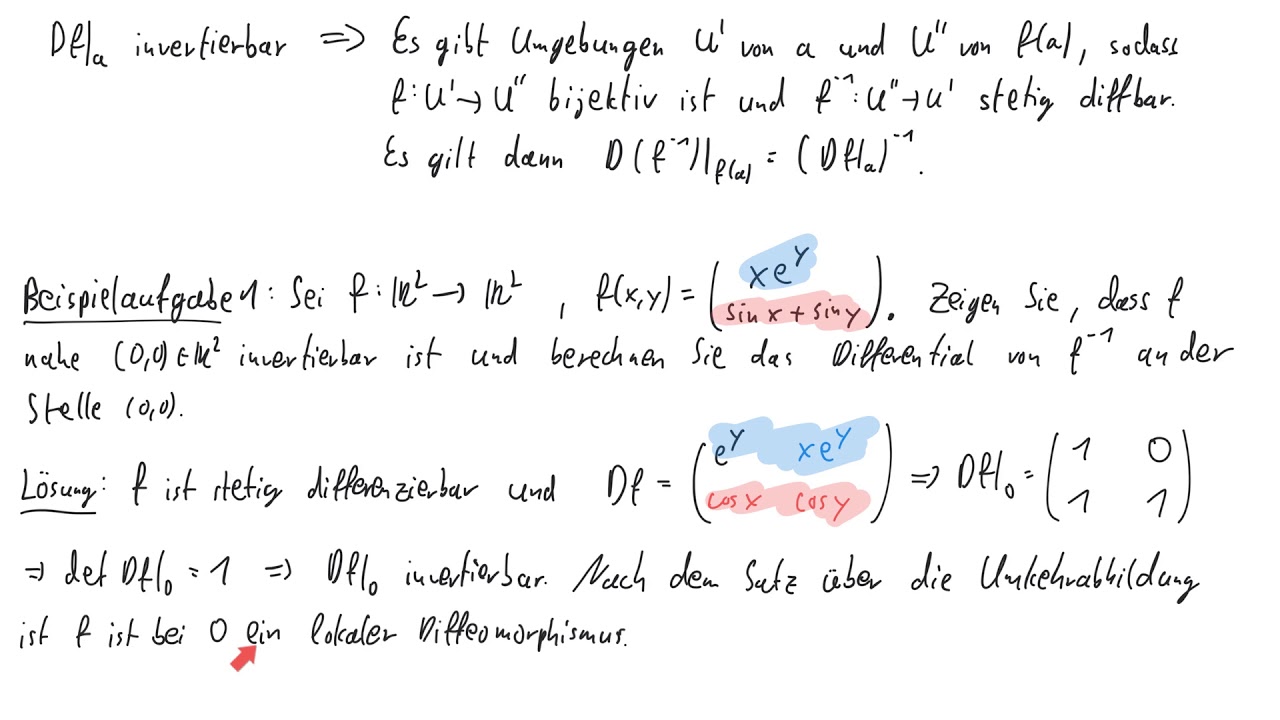 Df|ₐ invertierbar ⇒ Es gibt Umgebungen U' von a und U'' von f(a), sodass
f: U' → U'' bijektiv ist und f⁻¹: U'' → U' stetig diffbar.
Es gilt dann D(f⁻¹)|_f(a) = (Df|ₐ)⁻¹.
Beispielaufgabe 1: Sei f: ℝ² → ℝ², f(x,y) = (xe^y ; sin x + sin y). Zeigen Sie, dass f
nahe (0,0) ∈ ℝ² invertierbar ist und berechnen Sie das Differential von f⁻¹ an der
Stelle (0,0).
Lösung: f ist stetig differenzierbar und Df = (e^y xe^y ; cos x cos y) ⇒ Df|₀ = (1 0 ; 1 1)
⇒ det Df|₀ = 1 ⇒ Df|₀ invertierbar. Nach dem Satz über die Umkehrabbildung
ist f ist bei 0 ein lokaler Diffeomorphismus.